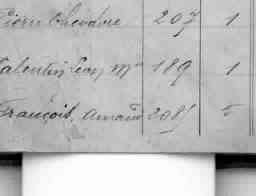 Pierre Theodore 207 1
Valentin Léon Mce 189 1
François, Amand 208